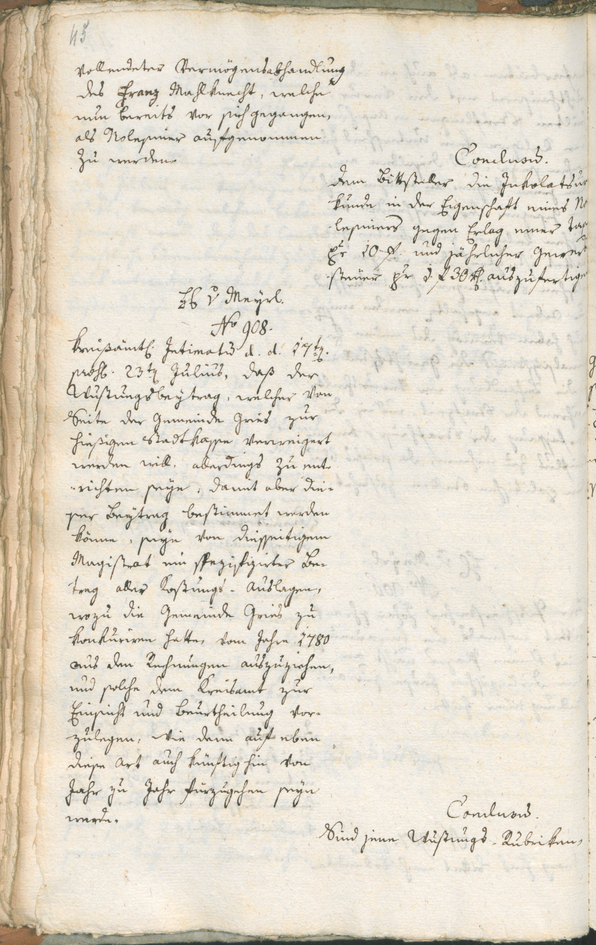 45
vollendeter Vermögensabhandlung
des Franz Mahlknecht, welche
nun bereits vor sich gegangen,
als Nolesiner aufgenommen
zu werden.
Conclusum.
Dem Bittsteller die Inkolatsur
kunde in der Eigenschaft eines No
lesiners gegen Erlag einer Tax
pr 10 f. und jährlicher Gewerb
steuer pr 1 f 30 xr auszufertige
H v Meyrl.
No 908.
Kreisämtl. Intimatum d. d. 17t.
præs. 23t. Julius, daß der
Wustungsbeytrag, welcher von
Seite der Gemeinde Gries zur
hiesigen Stadtkasse verweigert
werden will, allerdings zu ent-
richten seye, damit aber die-
ser Beytrag bestimmet werden
könne, seye von diesseitigem
Magistrat ein spezifizirter Be-
trag aller Auslagen,
wozu die Gemeinde Gries zu
konkuriren hatte, vom Jahre 1780
aus den Rechnungen auszuziehen,
und solche dem Kreisamt zur
Einsicht und Beurtheilung vor-
zulegen, wie dann auf eben
diese Art auch künftighin von
Jahr zu Jahr fürzugehen seyn
werde.
Conclusum.
Sind jene Wustungs-Rubriken,